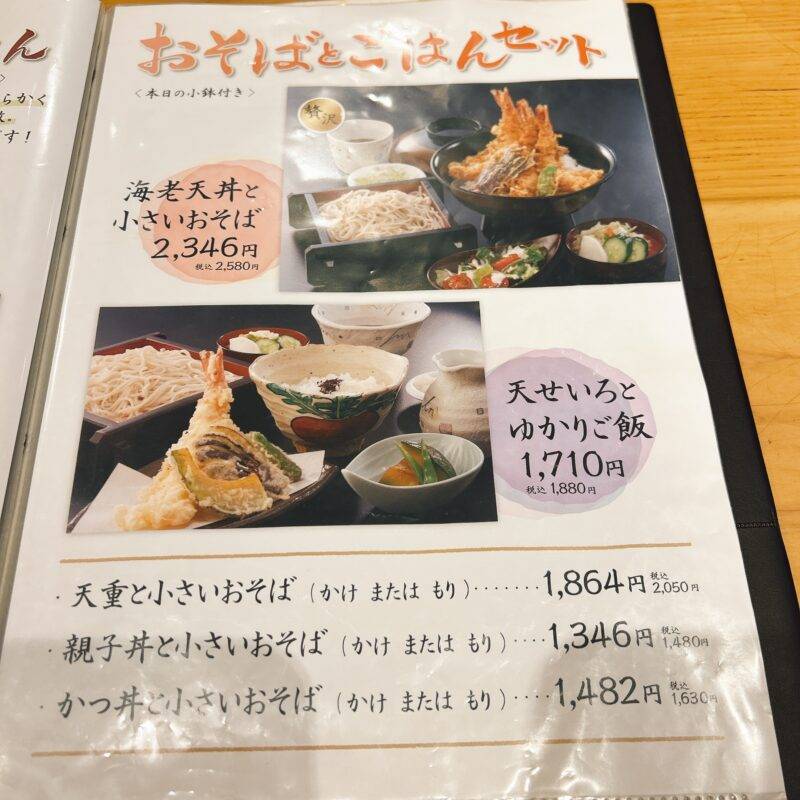 ん
らかく
す！
おそばとごはんセット
〈本日の小鉢付き〉
贅沢
海老天丼と
小さいおそば
2,346円
税込 2,580円
天せいろと
ゆかりご飯
1,710円
税込 1,880円
・天重と小さいおそば（かけ または もり）‥‥‥1,864円 税込 2,050円
・親子丼と小さいおそば（かけ または もり）‥‥1,346円 税込 1,480円
・かつ丼と小さいおそば（かけ または もり）‥‥1,482円 税込 1,630円